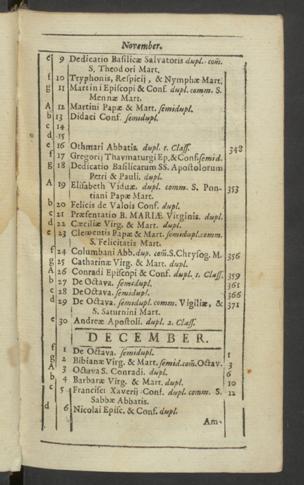 November.
e 9 Dedicatio Basilicæ Salvatoris dupl. com̄.
S. Theodori Mart.
f 10 Tryphonis, Respicij, & Nymphæ Mart.
g 11 Martini Episcopi & Conf. dupl. comm. S.
Mennæ Mart.
A 12 Martini Papæ & Mart. semidupl.
b 13 Didaci Conf. semidupl.
c 14
d 15
e 16 Othmari Abbatis. dupl. 1. Class. 348
f 17 Gregorij Thaymaturgi Ep. & Conf. semid.
g 18 Dedicatio Basilicarum SS. Apostolorum
Petri & Pauli. dupl.
A 19 Elisabeth Viduæ. dupl. comm. S. Pon- 353
tiani Papæ Mart.
b 20 Felicis de Valois Conf. dupl.
c 21 Præsentatio B. MARIÆ Virginis. dupl.
d 22 Cæciliæ Virg. & Mart. dupl.
e 23 Clementis Papæ & Mart. semidupl. comm.
S. Felicitatis Mart.
f 24 Columbani Abb. dup. com̄. S. Chrysog. M. 356
g 25 Catharinæ Virg. & Mart. dupl.
A 26 Conradi Episcopi & Conf. dupl. 1. Class. 359
b 27 De Octava. semidupl. 361
c 28 De Octava. semidupl. 366
d 29 De Octava. semidupl. comm. Vigiliæ, & 371
S. Saturnini Mart.
e 30 Andreæ Apostoli. dupl. 2. Class.
DECEMBER.
f 1 De Octava. semidupl. 1
g 2 Bibianæ Virg. & Mart. semid. com̄. Octav. 3
A 3 Octava S. Conradi. dupl. 6
b 4 Barbaræ Virg. & Mart. dupl. 10
c 5 Francisci Xaverij Conf. dupl. comm. S. 12
Sabbæ Abbatis.
d 6 Nicolai Episc. & Conf. dupl.
Am-